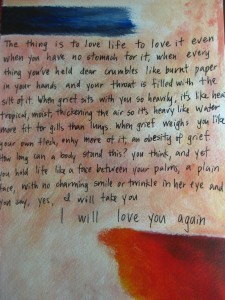 The thing is to love life to love it even
when you have no stomach for it, when every
thing you've held dear crumbles like burnt paper
in your hands and your throat is filled with the
silt of it. When grief sits with you so heavily, it's like heat
tropical, moist, thickening the air so it's heavy like water
more fit for gills than lungs. When grief weighs you like
your own flesh, only more of it, an obesity of grief
How long can a body stand this? you think, and yet
you hold life like a face between your palms, a plain
face, with no charming smile or twinkle in her eye and
you say, yes, I will take you
I will love you again